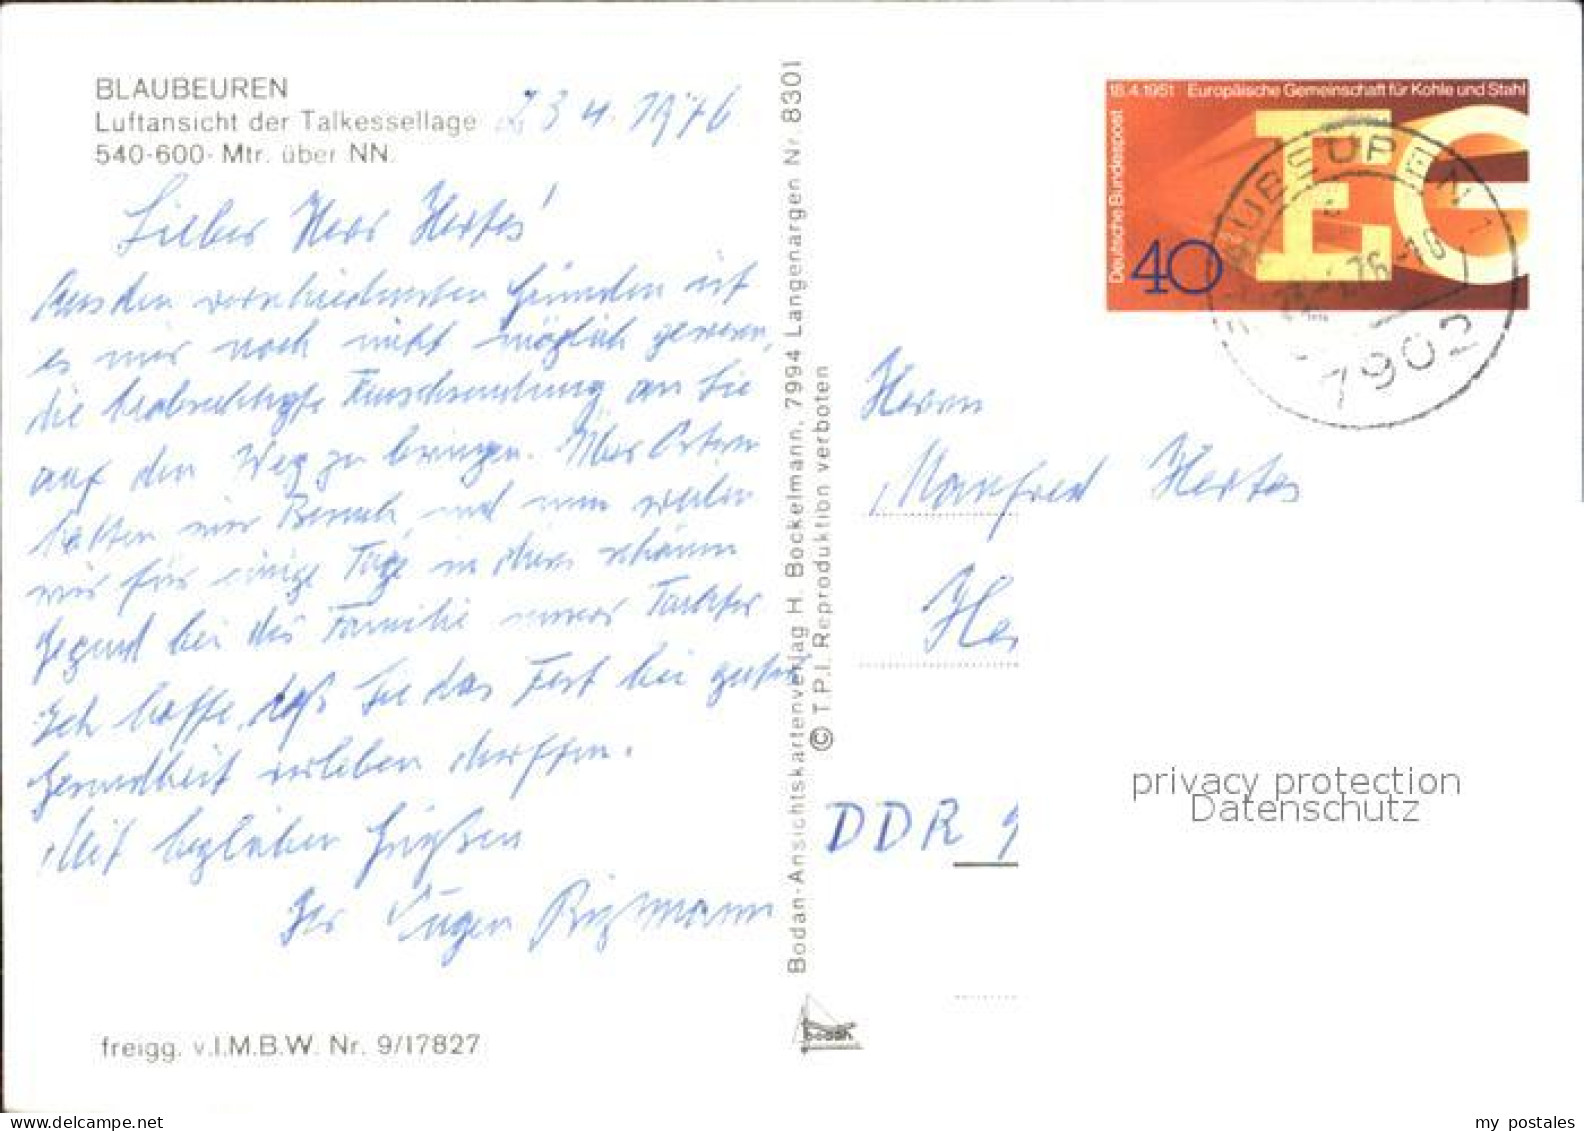 BLAUBEUREN
Luftansicht der Talkessellage
540-600- Mtr. über NN.
23 4. 1976
Lieber Herr Hertes!
Aus den verschiedensten Gründen ist
es mir noch nicht möglich gewesen,
die beabsichtigte Tauschsendung an Sie
auf den Weg zu bringen. Über Ostern
hatten wir Besuch und nun weilen
wir für einige Tage in dieser schönen
Gegend bei der Familie unserer Tochter
Ich hoffe, daß Sie das Fest bei guter
Gesundheit verleben durften.
Mit herzlichen Grüßen
Ihr Eugen
freigg. v.I.M.B.W. Nr. 9/17827
Bodan-Ansichtskartenverlag H. Bockelmann, 7994 Langenargen Nr. 8301
© T.P.I. Reproduktion verboten
bodan
18.4.1951 Europäische Gemeinschaft für Kohle und Stahl
Deutsche Bundespost
EG
40
BLAUBEUREN 1
7902
Herrn
Manfred Hertes
DDR 9
privacy protection
Datenschutz
my postales